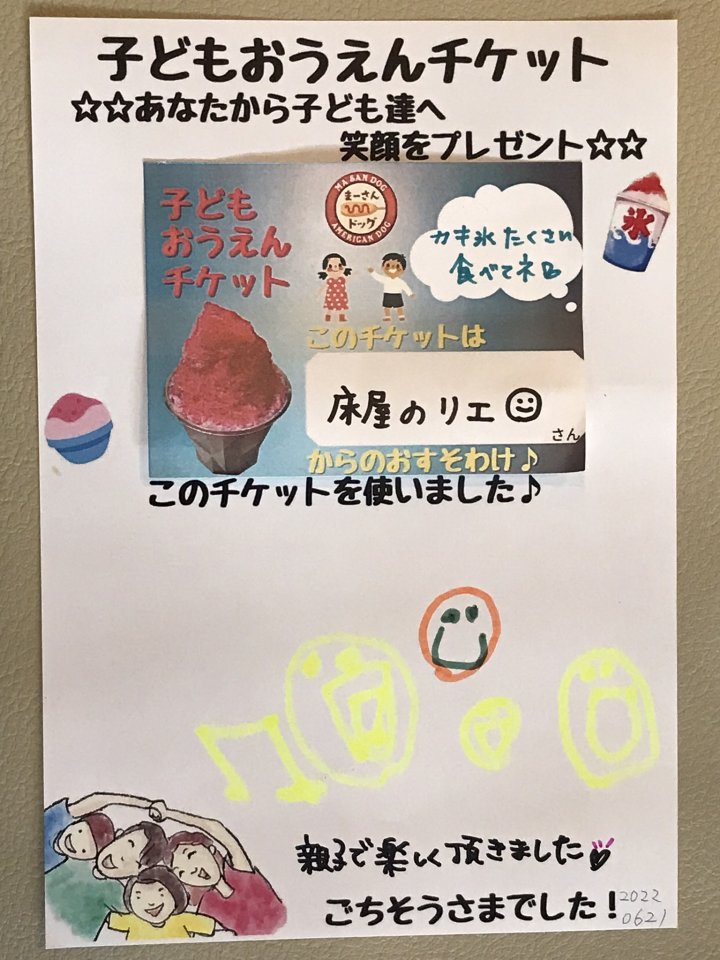 子どもおうえんチケット
☆☆あなたから子ども達へ
笑顔をプレゼント☆☆
子ども
おうえん
チケット
MA SAN DOG
まーさん
ドッグ
AMERICAN DOG
カキ氷たくさい
食べてネ
氷
このチケットは
床屋のリエ
さん
からのおすそわけ♪
このチケットを使いました♪
親子で楽しく頂きました
ごちそうさまでした!
2022
0621